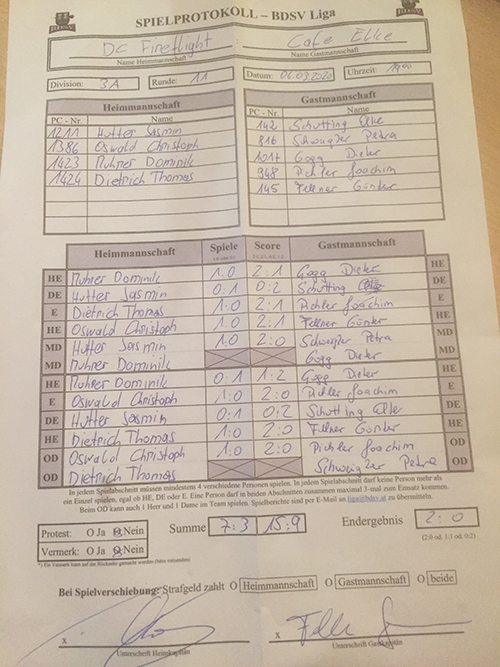 SPIELPROTOKOLL – BDSV Liga
DC Fireflight
Cafe Elke
Name Heimmannschaft
Name Gastmannschaft
Division: 3A Runde: 11 Datum: 06.03.2020 Uhrzeit: 1900
Heimmannschaft
PC - Nr. Name
1211 Hutter Jasmin
1386 Oswald Christoph
1423 Muhrer Dominik
1424 Dietrich Thomas
Gastmannschaft
PC - Nr. Name
142 Schütting Elke
816 Schweigzer Petra
1017 Gogg Dieter
948 Pichler Joachim
145 Fellner Günter
Heimmannschaft Spiele Score Gastmannschaft
HE Muhrer Dominik 1:0 2:1 Gogg Dieter HE
DE Hutter Jasmin 0:1 0:2 Schütting DE
E Dietrich Thomas 1:0 2:1 Pichler Joachim E
HE Oswald Christoph 1:0 2:1 Fellner Günter HE
MD Hutter Jasmin 1:0 2:0 Schweigzer Petra MD
MD Muhrer Dominik Gogg Dieter MD
HE Muhrer Dominik 0:1 1:2 Gogg Dieter HE
E Oswald Christoph 1:0 2:0 Pichler Joachim E
DE Hutter Jasmin 0:1 0:2 Schütting Elke DE
HE Dietrich Thomas 1:0 2:0 Fellner Günter HE
OD Oswald Christoph 1:0 2:0 Pichler Joachim OD
OD Dietrich Thomas Schweigzer Petra OD
In jedem Spielabschnitt müssen mindestens 4 verschiedene Personen spielen. In jedem Spielabschnitt darf keine Person mehr als
ein Einzel spielen, egal ob HE, DE oder E. Eine Person darf in beiden Abschnitten zusammen maximal 3-mal zum Einsatz kommen.
Beim OD kann auch 1 Herr und 1 Dame im Team spielen. Spielberichte sind per E-Mail an liga@bdsv.at zu übermitteln.
Protest: O Ja O Nein Summe 7:3 15:9 Endergebnis 2:0
Vermerk: O Ja O Nein (2:0 od. 1:1 od. 0:2)
*) Ein Vermerk kann auf der Rückseite gemacht werden (bitte ankreuzen)
Bei Spielverschiebung: Strafgeld zahlt O Heimmannschaft O Gastmannschaft O beide
x x
Unterschrift Heimkapitän Unterschrift Gastkapitän